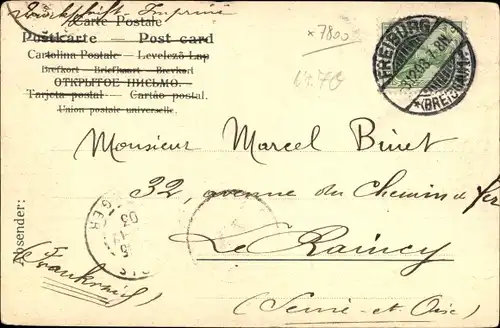 Druckschrift - Imprimé
Carte Postale
Postkarte — Post card
Cartolina Postale — Levelező-Lap
Brefkort — Briefkaart — Brevkort
ОТКРЫТОЕ ПИСЬМО.
Tarjeta postal — Cartão postal.
Union postale universelle.
*7800
Nr. 70
FREIBURG
*(BREISGAU)
Monsieur Marcel Binet
32, avenue du Chemin de fer
Le Raincy
(Seine-et-Oise)
Absender:
(Frankreich)